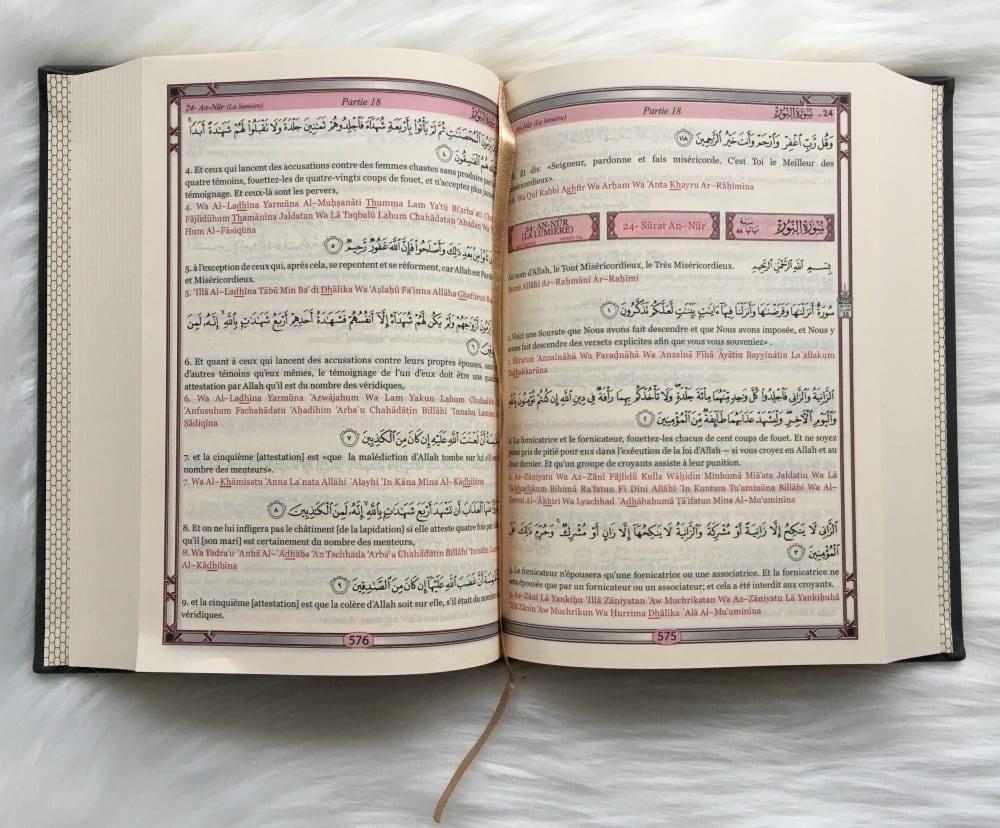 An-Nûr (La lumière) Partie 18 سورة النور - 24
وَقُل رَّبِّ ٱغْفِرْ وَٱرْحَمْ وَأَنتَ خَيْرُ ٱلرَّٰحِمِينَ ١١٨
Et dis: «Seigneur, pardonne et fais miséricorde. C'est Toi le Meilleur des
miséricordieux».
Wa Qul Rabbi Aghfir Wa Arĥam Wa 'Anta Khayru Ar-Rāĥimīna
24- AN-NÛR
(LA LUMIÈRE)
24- Sūrat An-Nūr
سورة النور
Au nom d'Allah, le Tout Miséricordieux, le Très Miséricordieux. بِسْمِ ٱللَّهِ ٱلرَّحْمَٰنِ ٱلرَّحِيمِ
Bismi Allāhi Ar-Raĥmāni Ar-Raĥīmi
سُورَةٌ أَنزَلْنَٰهَا وَفَرَضْنَٰهَا وَأَنزَلْنَا فِيهَآ ءَايَٰتٍۭ بَيِّنَٰتٍ لَّعَلَّكُمْ تَذَكَّرُونَ ١
1. Voici une Sourate que Nous avons fait descendre et que Nous avons imposée, et Nous y
avons fait descendre des versets explicites afin que vous vous souveniez» .
1. Sūratun 'Anzalnāhā Wa Faradnāhā Wa 'Anzalnā Fīhā 'Āyātin Bayyinātin La`allakum
Tadhakkarūna
ٱلزَّانِيَةُ وَٱلزَّانِى فَٱجْلِدُوا۟ كُلَّ وَٰحِدٍ مِّنْهُمَا مِا۟ئَةَ جَلْدَةٍ وَلَا تَأْخُذْكُم بِهِمَا رَأْفَةٌ فِى دِينِ ٱللَّهِ إِن كُنتُمْ تُؤْمِنُونَ بِٱللَّهِ
وَٱلْيَوْمِ ٱلْءَاخِرِ وَلْيَشْهَدْ عَذَابَهُمَا طَآئِفَةٌ مِّنَ ٱلْمُؤْمِنِينَ ٢
2. La fornicatrice et le fornicateur, fouettez-les chacun de cent coups de fouet. Et ne soyez
point pris de pitié pour eux dans l'exécution de la loi d'Allah – si vous croyez en Allah et au
Jour dernier. Et qu'un groupe de croyants assiste à leur punition.
2. Az-Zāniyatu Wa Az-Zānī Fājlidū Kulla Wāĥidin Minhumā Mi'ata Jaldatin Wa Lā
Ta'khudhkum Bihimā Ra'fatun Fī Dīni Allāhi 'In Kuntum Tu'uminūna Billāhi Wa Al-
Yawmi Al-'Ākhiri Wa Lyachhad `Adhābahumā Ţā'ifatun Mina Al-Mu'uminīna
ٱلزَّانِى لَا يَنكِحُ إِلَّا زَانِيَةً أَوْ مُشْرِكَةً وَٱلزَّانِيَةُ لَا يَنكِحُهَآ إِلَّا زَانٍ أَوْ مُشْرِكٌ وَحُرِّمَ ذَٰلِكَ عَلَى
ٱلْمُؤْمِنِينَ ٣
3. Le fornicateur n'épousera qu'une fornicatrice ou une associatrice. Et la fornicatrice ne
sera épousée que par un fornicateur ou un associateur; et cela a été interdit aux croyants.
3. Az-Zānī Lā Yankiĥu 'Illā Zāniyatan 'Aw Muchrikatan Wa Az-Zāniyatu Lā Yankiĥuhā
'Illā Zānin 'Aw Muchrikun Wa Ĥurrima Dhālika `Alá Al-Mu'uminīna
575
24- An-Nûr (La lumière) Partie 18 سورة
يَرْمُونَ ٱلْمُحْصَنَٰتِ ثُمَّ لَمْ يَأْتُوا۟ بِأَرْبَعَةِ شُهَدَآءَ فَٱجْلِدُوهُمْ ثَمَٰنِينَ جَلْدَةً وَلَا تَقْبَلُوا۟ لَهُمْ شَهَٰدَةً أَبَدًا
هُمُ ٱلْفَٰسِقُونَ ٤
4. Et ceux qui lancent des accusations contre des femmes chastes sans produire par
quatre témoins, fouettez-les de quatre-vingts coups de fouet, et n'acceptez plus
témoignage. Et ceux-là sont les pervers,
4. Wa Al-Ladhīna Yarmūna Al-Muĥşanāti Thumma Lam Ya'tū Bi'arba`ati
Fājlidūhum Thamānīna Jaldatan Wa Lā Taqbalū Lahum Chahādatan 'Abadan Wa
Hum Al-Fāsiqūna
مِنۢ بَعْدِ ذَٰلِكَ وَأَصْلَحُوا۟ فَإِنَّ ٱللَّهَ غَفُورٌ رَّحِيمٌ ٥
5. à l'exception de ceux qui, après cela, se repentent et se réforment, car Allah est
et Miséricordieux.
5. 'Illā Al-Ladhīna Tābū Min Ba`di Dhālika Wa 'Aşlaĥū Fa'inna Allāha Ghafūrun
يَرْمُونَ أَزْوَٰجَهُمْ وَلَمْ يَكُن لَّهُمْ شُهَدَآءُ إِلَّآ أَنفُسُهُمْ فَشَهَٰدَةُ أَحَدِهِمْ أَرْبَعُ شَهَٰدَٰتٍۭ بِٱللَّهِ إِنَّهُۥ لَمِنَ
٦
6. Et quant à ceux qui lancent des accusations contre leurs propres épouses, sans
d'autres témoins qu'eux mêmes, le témoignage de l'un d'eux doit être une
attestation par Allah qu'il est du nombre des véridiques,
6. Wa Al-Ladhīna Yarmūna 'Azwājahum Wa Lam Yakun Lahum
'Anfusuhum Fachahādatu 'Aĥadihim 'Arba`u Chahādātin Billāhi 'Innahu Lamina
Şādiqīna
أَنَّ لَعْنَتَ ٱللَّهِ عَلَيْهِ إِن كَانَ مِنَ ٱلْكَٰذِبِينَ ٧
7. et la cinquième [attestation] est «que la malédiction d'Allah tombe sur lui s'il
nombre des menteurs».
7. Wa Al-Khāmisatu 'Anna La`nata Allāhi `Alayhi 'In Kāna Mina Al-Kādhibīna
عَنْهَا ٱلْعَذَابَ أَن تَشْهَدَ أَرْبَعَ شَهَٰدَٰتٍۭ بِٱللَّهِ إِنَّهُۥ لَمِنَ ٱلْكَٰذِبِينَ ٨
8. Et on ne lui infligera pas le châtiment [de la lapidation] si elle atteste quatre fois par
qu'il [son mari] est certainement du nombre des menteurs,
8. Wa Yadra'u `Anhā Al-`Adhāba 'An Tachhada 'Arba`a Chahādātin Billāhi 'Innahu
Al-Kādhibīna
أَنَّ غَضَبَ ٱللَّهِ عَلَيْهَآ إِن كَانَ مِنَ ٱلصَّٰدِقِينَ ٩
9. et la cinquième [attestation] est que la colère d'Allah soit sur elle, s'il était du nombre
véridiques.
576